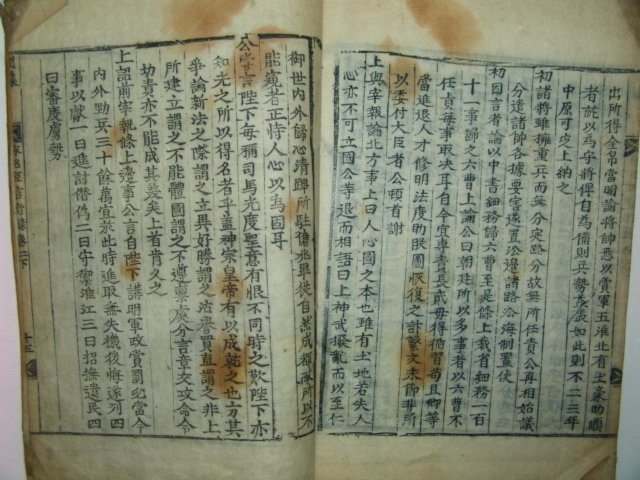 出所得金帛當明諭將帥悉以當軍五淮北有土豪助順
者就以為守將俾自為備則兵勢庶振如此則不二三年
中原可定上納之
初諸將雖擁重兵而無分定路分故無所任責公再相始議
分遣諸帥各據要害後置㳂邊諸路㳂海制置使
初因言者論以中書細務歸六曹至是條上裁省細務一百
十一事歸之六曹上論公曰朝廷所以多事者以六曹不
任責每事取决耳自今宜專責長貳毋得循習苟且卿等
當進退人才修明法度助朕圖恢復之計繫文末節非所
以委付大臣者公頓首謝
上與宰報論北方事上曰人心國之本也雖有土地若失人
心亦不可立國公等退而相語曰上神武撥亂而以至仁
御世内外歸心清蹕所駐僅兆單徒自然成都家所以不
能窺者正恃人心以為固耳
公嘗言陛下毋稱司馬光度聖意有恨不同時之歎陛下亦
知光之所以得名者乎盖神宗皇帝有以成就之也方其
爭論新法之際謂之立異好勝謂之沽譽買直謂之非上
所建立謂之不體國謂之不遵稟處分言章交攻命令
功責亦不能成其美矣上首肯久之
上詔前宰執條上邊事公言自陛下講明軍政賞罰必當今
内外勁兵三十餘萬宜放此時進取無失機後悔遂列四
事以獻一曰進討僭偽二曰守禦淮江三曰招撫遺民四
曰審度虜勢
十五